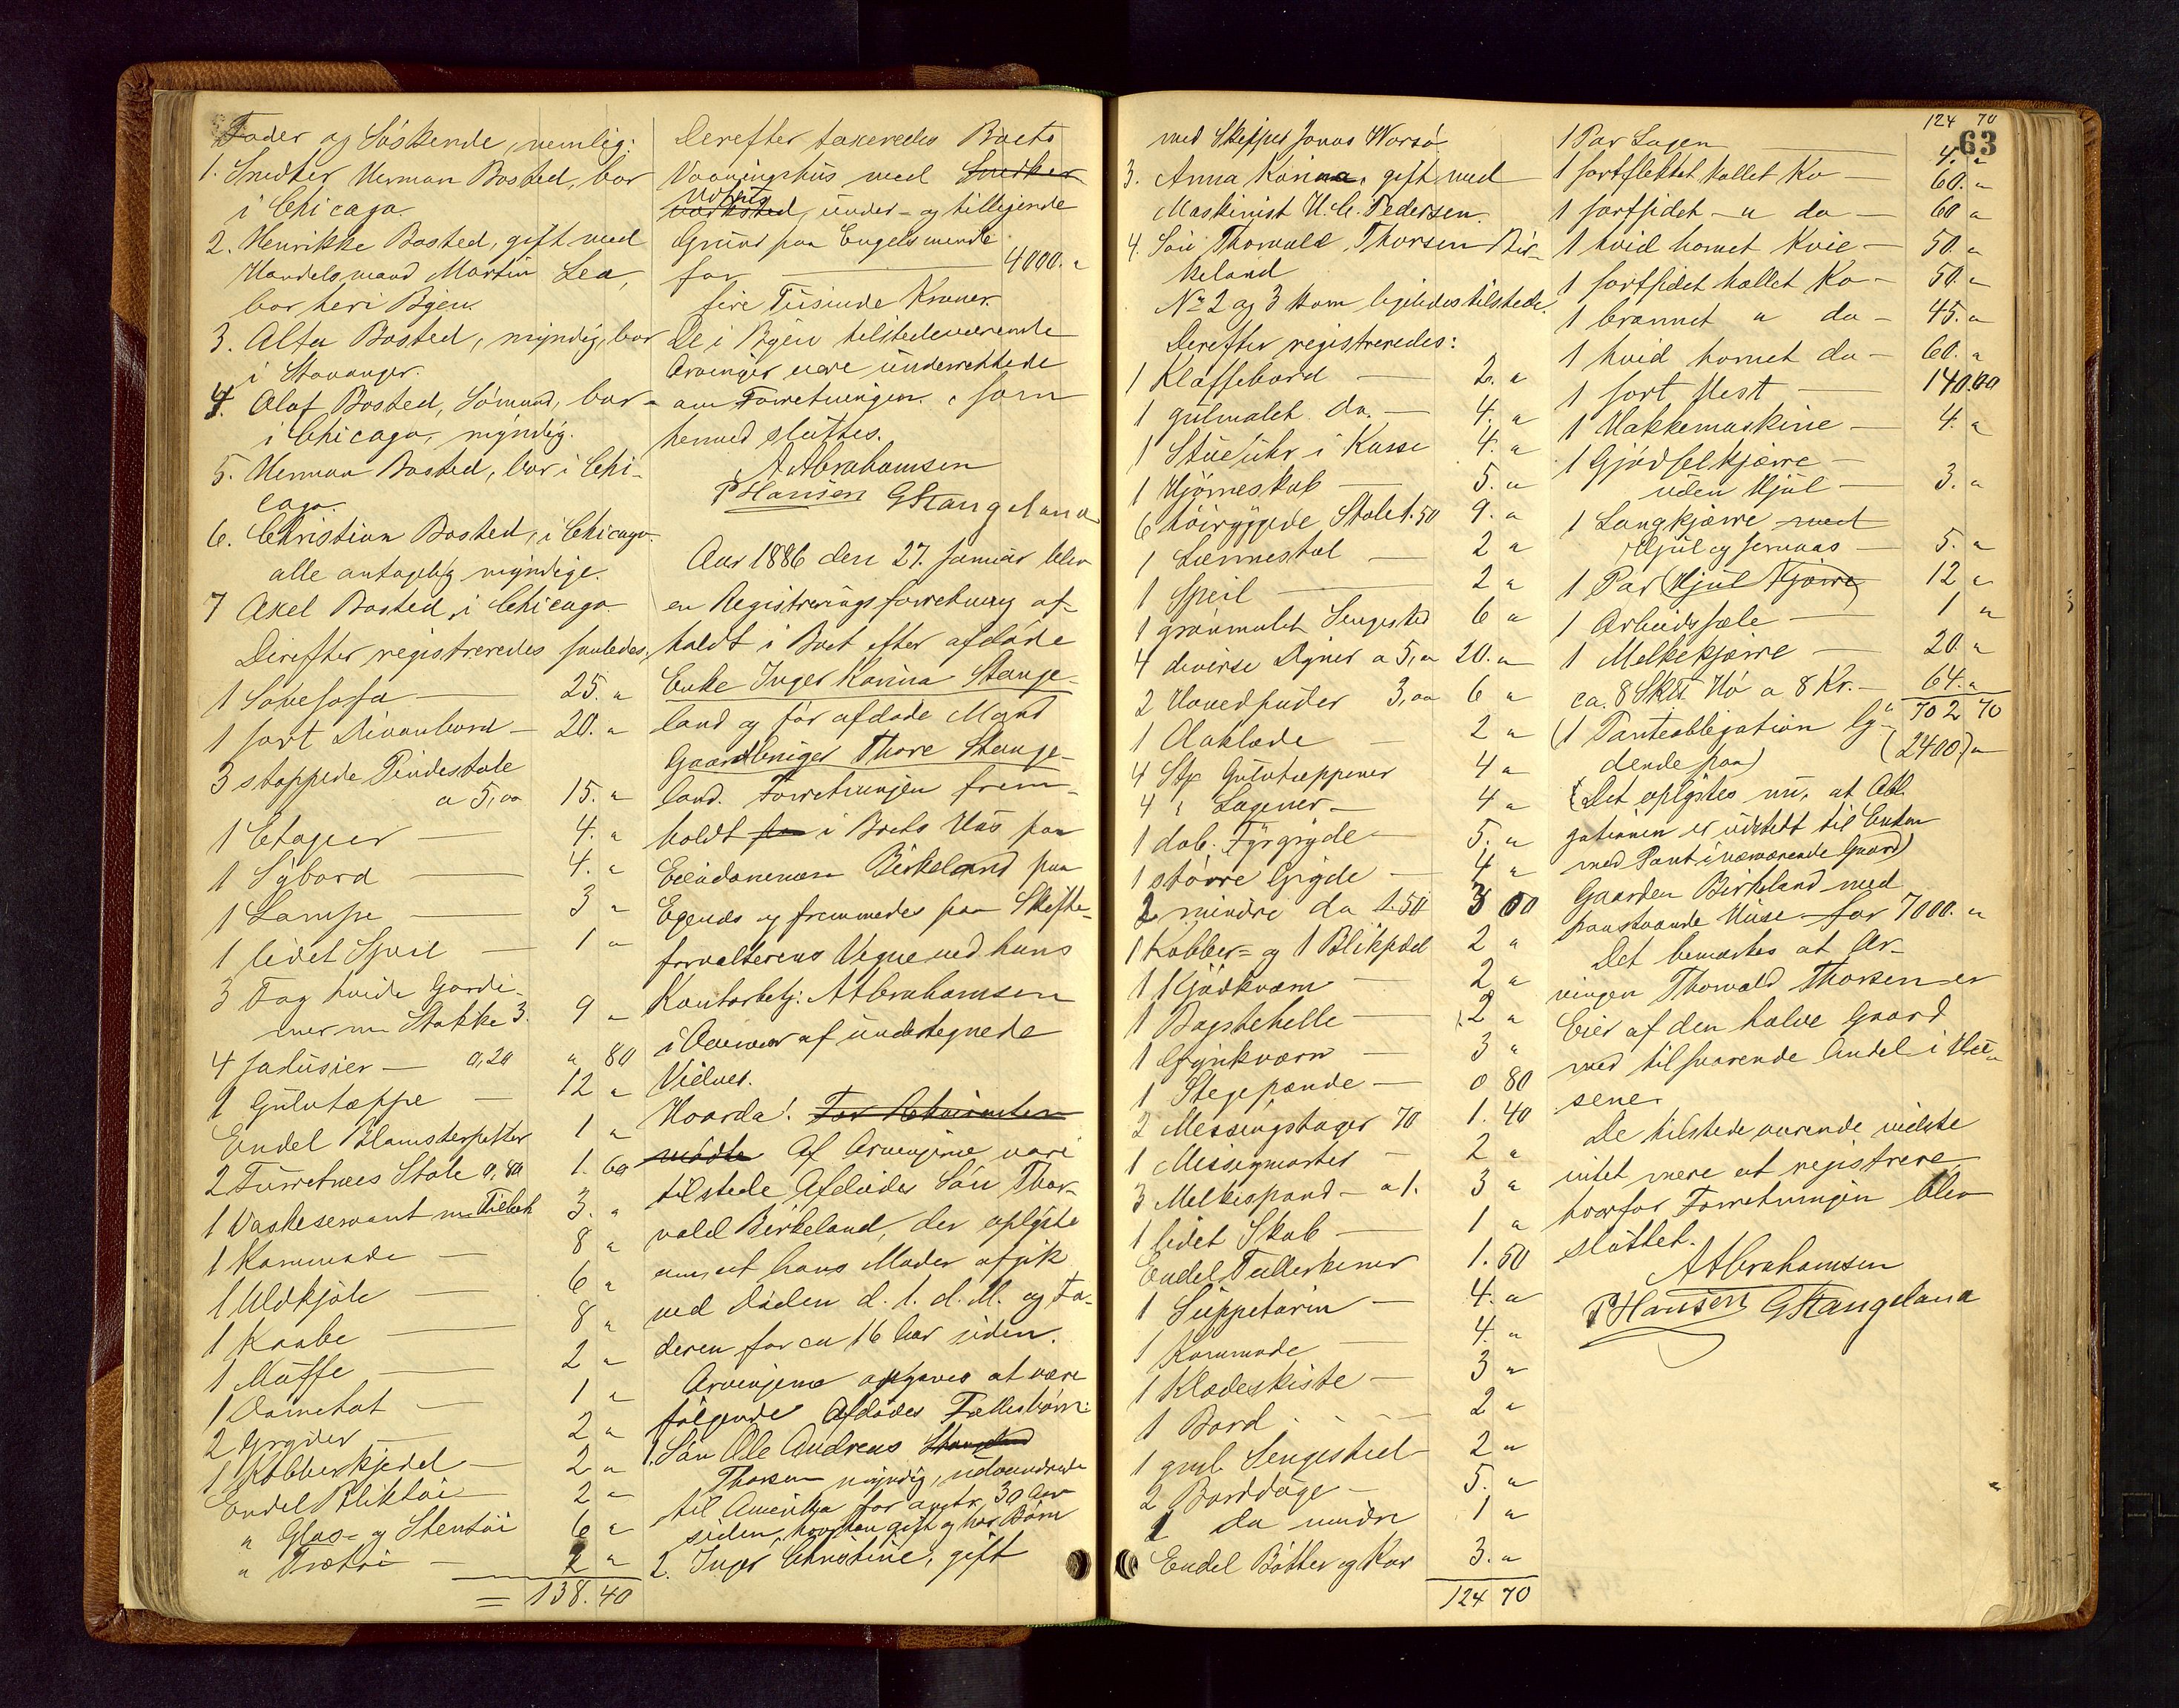 Fader og Söskende, nemlig:
1. Snedker Herman Bosted, bor
i Chicago.
2. Henrikke Bosted, gift med
Handelsmand Martin Lea,
bor her i Byen.
3. Alfa Bosted, myndig, bor
i Stavanger.
4. Olaf Bosted, Sömand, bor
i Chicago, myndig.
5. Herman Bosted, bor i Chi-
cago.
6. Christian Bosted, i Chicago.
alle antagelig myndige.
7 Axel Bosted, i Chicago.
Derefter registreredes saaledes:
1 Sovesofa — 25. "
1 sort Divanbord — 20. "
3 stoppede Pindestole
a 5,00 15. "
1 Etagier — 4. "
1 Sybord — 4. "
1 Lampe — 3 "
1 lidet Speil — 1 "
3 Fag hvide Gardi-
ner m Stokke 3. 9 "
4 Jalusier — 0,20 " 80
1 Gulvtæppe — 12 "
Endel Blomsterpotter 1 "
2 Furretræes Stole 0,80 1. 60
1 Vaskeservant m Tilbeh 3. "
1 Kommode — 8 "
1 Uldkjole — 6 "
1 Kaabe — 8 "
1 Muffe — 2 "
1 Damehat — 1 "
2 Gryder — 2 "
1 Kobberkjedel — 2 "
Endel Bliktöi — 2 "
" Glas- og Stentöi 6 "
" Trætöi — 2 "
= 138. 40
Derefter taxeredes Boets
Vaaningshus med Snedker
værksted, Udhus under- og tilligende
Grund paa Engelsminde
for — 4000. "
fire Tusinde Kroner.
De i Byen tilstedeværende
Arvinger vare underrettede
om Forretningen, som
hermed sluttes.
A Abrahamsen
P Hansen G Stangeland
Aar 1886 den 27. Januar blev
en Registreringsforretning af-
holdt i Boet efter afdöde
Enke Inger Karina Stange-
land og för afdöde Mand
Gaardbruger Thore Stange-
land. Forretningen frem-
holdt paa i Boets Hus paa
Eiendommen Birkeland paa
Egenæs og fremmedes paa Skifte-
forvalterens Vegne ved hans
Kontorbetj: A Abrahamsen
i Overvær af undertegnede
Vidner.
Hvorda!
mödte Af Arvingerne vare
tilstede Afdödes Sön Thor-
vald Birkeland, der oplyste
om, at hans Moder afgik
ved Döden d. 1. d. M. og Fa-
deren for ca 16 Aar siden.
Arvingerne opgaves at være
fölgende Afdödes Fællesbörn:
1. Sön Ole Andreas Stangeland
Thorsen myndig, udvandrede
til Amerika for angtr. 30 Aar
siden, hvor han gift og har Börn
2. Inger Christine, gift
124 70
63
med Skipper Jonas Worsö
3. Anna Karina, gift med
Maskinist H. C. Pedersen.
4. Sön Thorvald Thorsen Bir-
keland
No 2 og 3 kom ligeledes tilstede.
Derefter registreredes:
1 Klaffebord — 2. "
1 gulmalet do. — 4. "
1 Stueuhr i Kasse 4. "
1 Hjörneskab — 5. "
6 höiryggede Stole 1.50 9. "
1 Lænnestol — 2 "
1 Speil — 2 "
1 grönmalet Sengested 6 "
4 diverse Dyner a 5, " 20. "
2 Hovedpuder 3,00 6 "
1 Aaklæde — 2 "
4 Stk Gulvtæppener 4 "
4 " Lagener — 4 "
1 dob. Fyrgryde — 5. "
1 större Gryde — 4 "
2 mindre do 1.50 3 00
1 Kobber- og 1 Blikpdel 2 "
1 Kjödkværn — 2 "
1 Bagstehelle — 2 "
1 Grynkværn — 3 "
1 Stegepande — 0 80
2 Messingstager 70 1. 40
1 Messingmorter — 2 "
3 Melkespand — a 1. 3 "
1 lidet Skab — 1 "
Endel Tallerkener 1. 50
1 Suppeterin — 4. "
1 Kommode — 4. "
1 Klædeskiste — 3 "
1 Bord — 2 "
1 gml. Sengested 2 "
2 Borddüge — 5. "
1 do mindre 1 "
Endel Bötter og Kar 3. "
124 70
1 Par Lagen — 4. "
1 sortflekket kollet Ko — 60. "
1 sortsidet — " do — 60 "
1 hvid hornet Kvie — 50. "
1 sortsidet kollet Ko — 50. "
1 brannet " do — 45. "
1 hvid hornet do — 60. "
1 sort Hest — 140.00
1 Hakkemaskine — 4. "
1 Gjödselkjærre —
uden Hjul — 3. "
1 Langkjærre med
Hjul og — 5. "
1 Par (Hjul Kjærre) 12 "
1 Arbeidssæle — 1 "
1 Melkekjærre — 20. "
ca. 8 Skll Hö a 8 Kr. — 64. "
702 70
(1 Panteobligation ly-
dende paa) (2400.) "
(Det oplystes nu, at Obli
gationen er udstedt til Enken
med Pant i nærværende Gaard)
Gaarden Birkeland med
paastaaende Huse for 7000. "
Det bemærkes at Ar-
vingen Thorvald Thorsen er
Eier af den halve Gaard
med tilsvarende Andel i Hu-
sene.
De tilstedeværende vidste
intet mere at registrere,
hvorfor Forretningen blev
sluttet.
A Abrahamsen
P Hansen G Stangeland